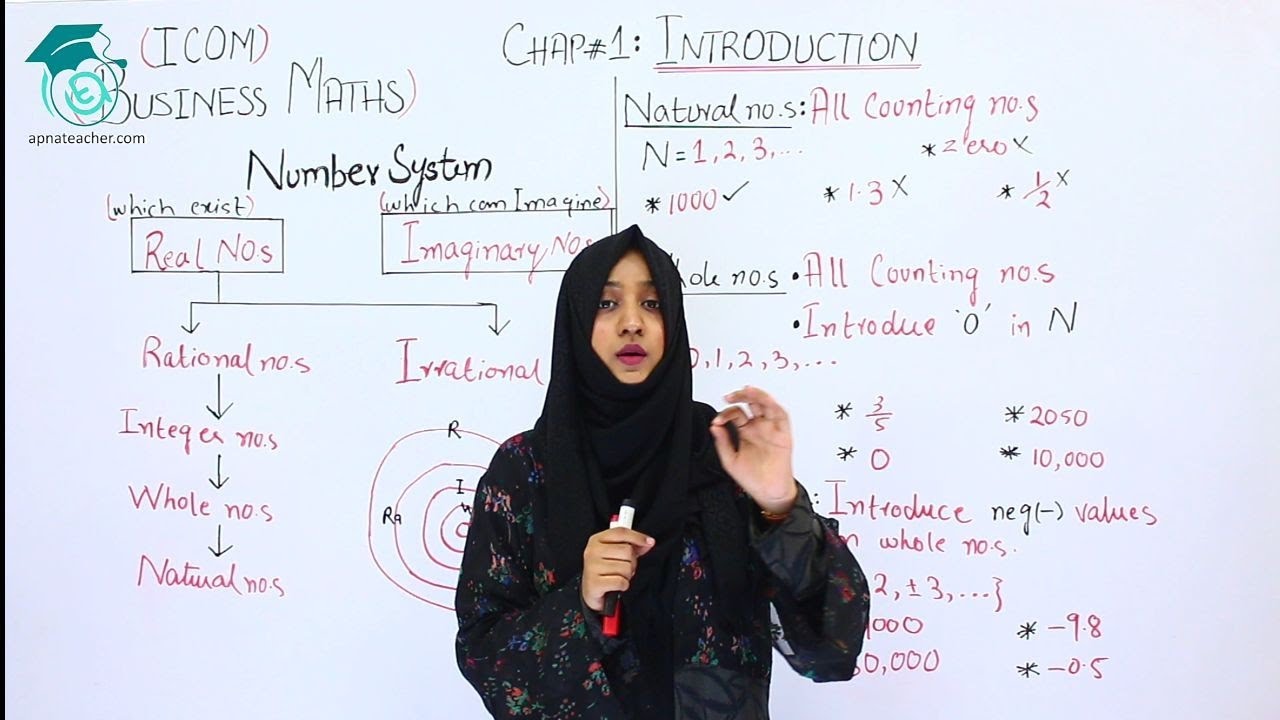 apnateacher.com
(ICOM)
(BUSINESS MATHS)
CHAP#1: INTRODUCTION
Number System
(which exist)
(which can Imagine)
Real NO.s
Imaginary NO.s
Rational no.s
Irrational
Integer no.s
Whole no.s
Natural no.s
R
Ra
I
W
Natural no.s: All Counting no.s
N = 1, 2, 3, ...
* zero X
* 1000 ✓
* 1.3 X
* 1/2 X
no.s • All Counting no.s
• Introduce '0' in N
0, 1, 2, 3, ...
* 3/5
* 2050
* 0
* 10,000
: Introduce neg(-) values
whole no.s.
2, ±3, ...}
000
* -9.8
0,000
* -0.5